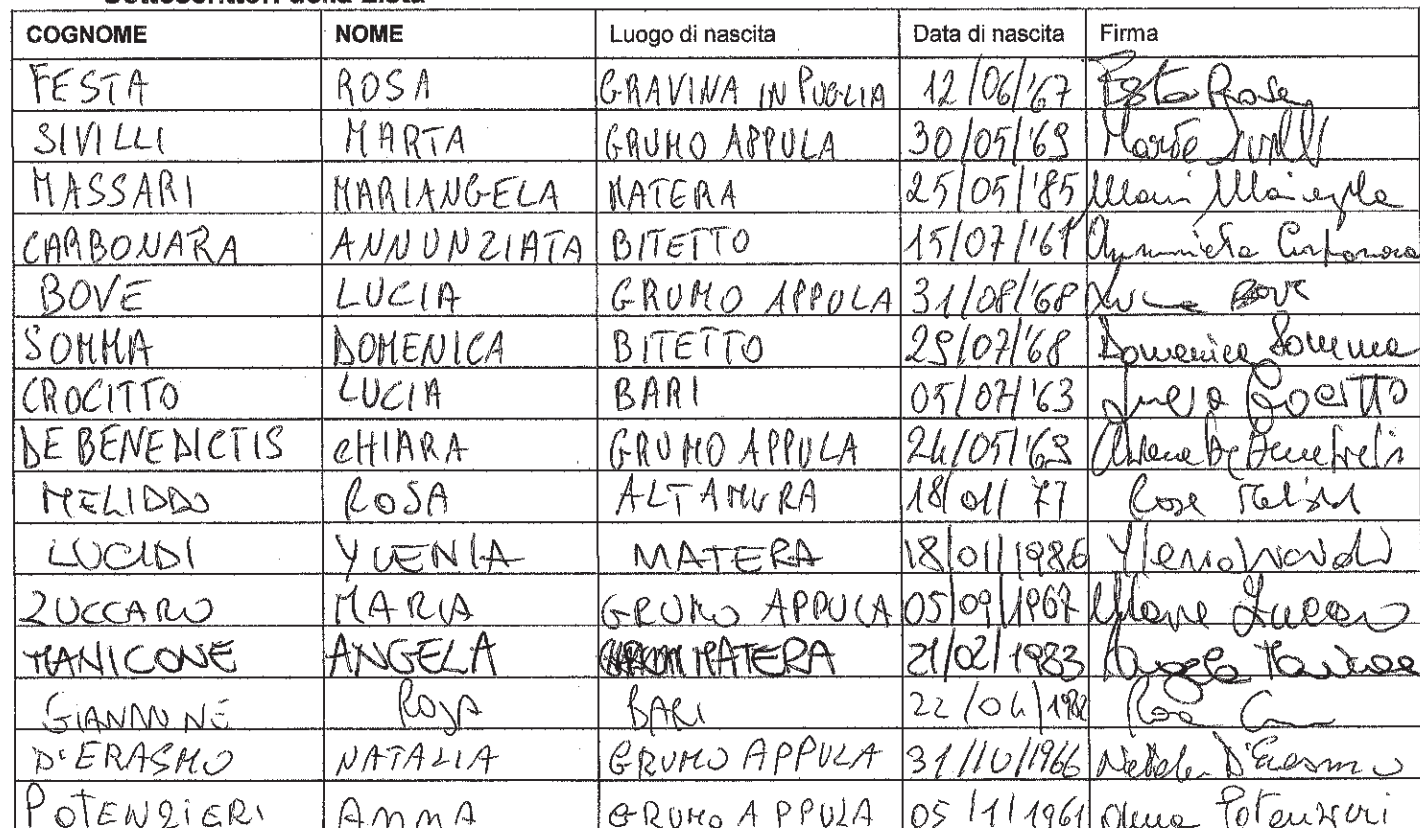 Sottoscrittori della Lista
COGNOME NOME Luogo di nascita Data di nascita Firma
FESTA ROSA GRAVINA IN PUGLIA 12/06/'67 Festa Rosa
SIVILLI MARTA GRUMO APPULA 30/05/'69 Marta Sivilli
MASSARI MARIANGELA MATERA 25/05/'85
CARBONARA ANNUNZIATA BITETTO 15/07/'61 Carbonara
BOVE LUCIA GRUMO APPULA 31/08/'68 Lucia BOVE
SOMMA DOMENICA BITETTO 29/07/'68 Domenica Somma
CROCITTO LUCIA BARI 05/07/'63 Lucia Crocitto
DE BENEDICTIS CHIARA GRUMO APPULA 24/05/'69 Chiara De Benedictis
MELIDDO ROSA ALTAMURA 18/01/77 Rosa
LUCIDI YLENIA MATERA 18/01/1986 Ylenia
ZUCCARO MARIA GRUMO APPULA 05/09/1967 Maria Zuccaro
MANICONE ANGELA MATERA 21/02/1983 Angela Manicone
GIANNINE ROSA BARI 22/04/1982 Rosa
D'ERASMO NATALIA GRUMO APPULA 31/10/1966 Natalia D'Erasmo
POTENZIERI ANNA GRUMO APPULA 05/1/1961 Anna Potenzieri